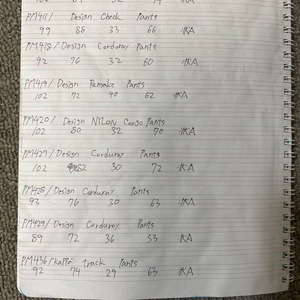 PM411/ Design Check Pants
99 88 33 66 ·IKA
PM418/ Design Corduroy Pants
92 76 32 60 ·IKA
PM419/ Design Remake Pants
102 72 40 62 ·IKA
PM420/ Design NYLON Cargo Pants
102 80 32 70 ·IKA
PM427/ Design Corduroy Pants
102 82 30 72 ·IKA
PM428/ Design Corduroy Pants
93 76 30 63 ·IKA
PM429/ Design Corduroy Pants
89 72 36 53 ·IKA
PM436/ kappa track Pants
92 74 29 63 ·IKA